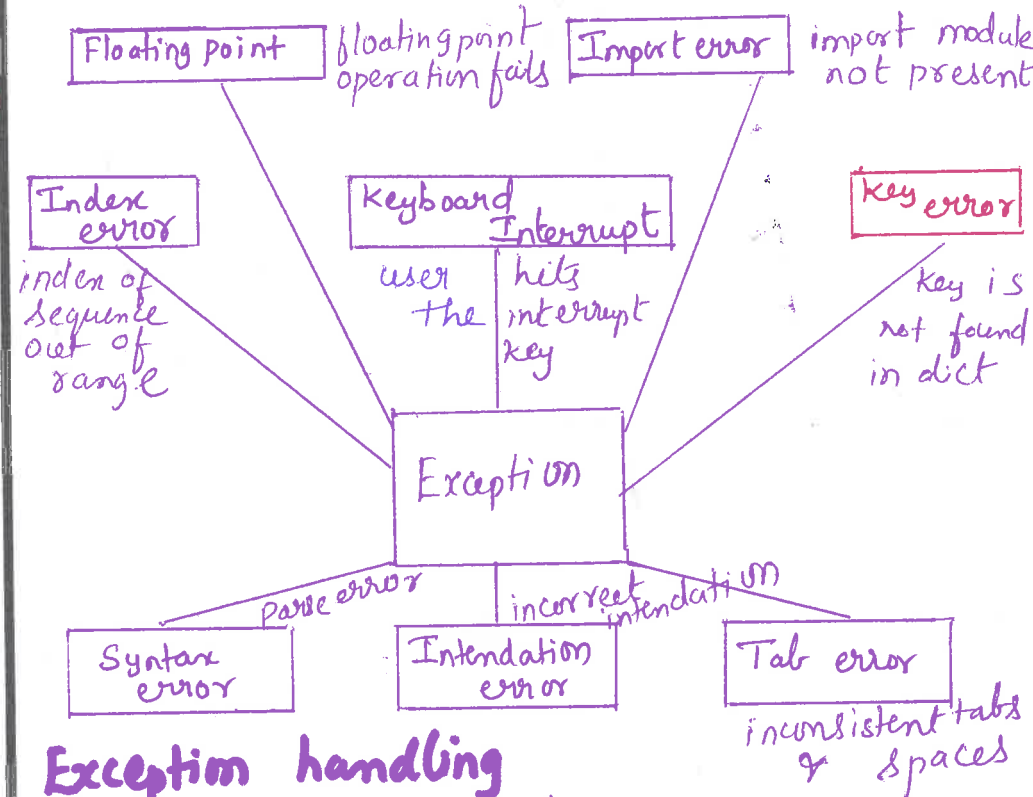 Floating point
floating point
operation fails
Import error
import module
not present
Index
error
index of
sequence
out of
range
Keyboard
Interrupt
user hits
the interrupt
key
Key error
key is
not found
in dict
Exception
Parse error
Syntax
error
incorrect intendation
Intendation
error
Tab error
inconsistent tabs
& spaces
Exception handling